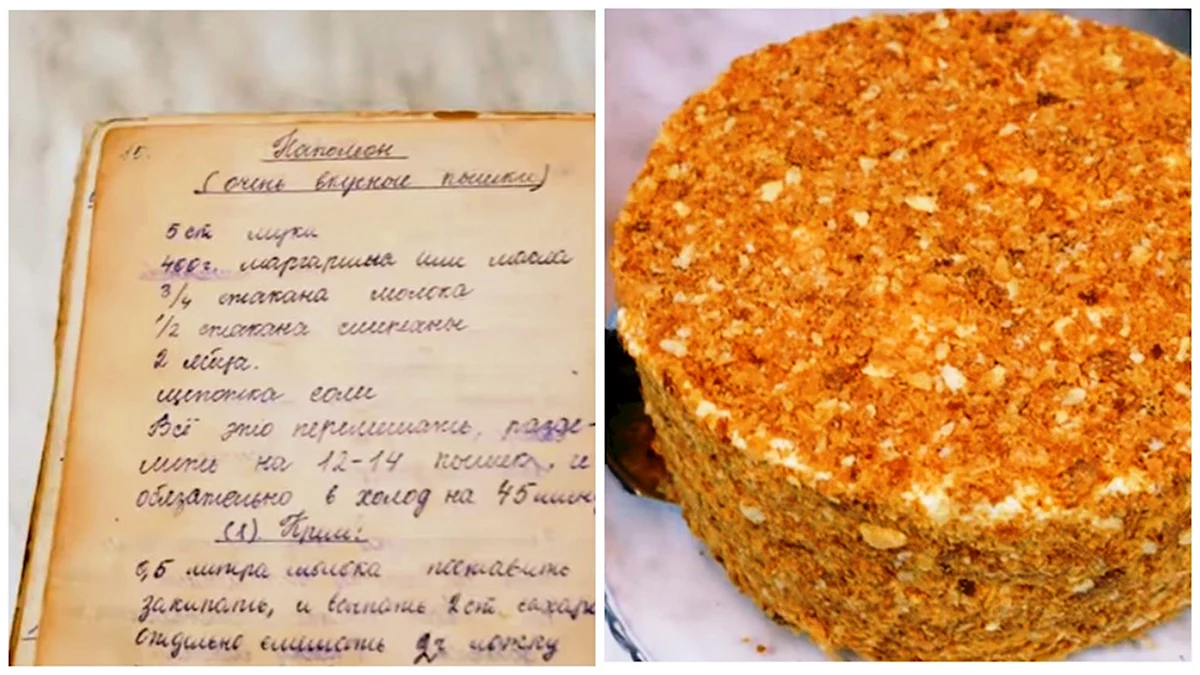 15.
Наполеон
(очень вкусные пышки)
5 ст муки
400 г. маргарина или масла
3/4 стакана молока
1/2 стакана сметаны
2 яйца.
щепотка соли
Всё это перемешать, разде-
лить на 12-14 пышек, и
обязательно в холод на 45 мин
(1). Крем:
0,5 литра молока поставить
закипать, и всыпать 2 ст сахара
отдельно смешать 2 ч ложку